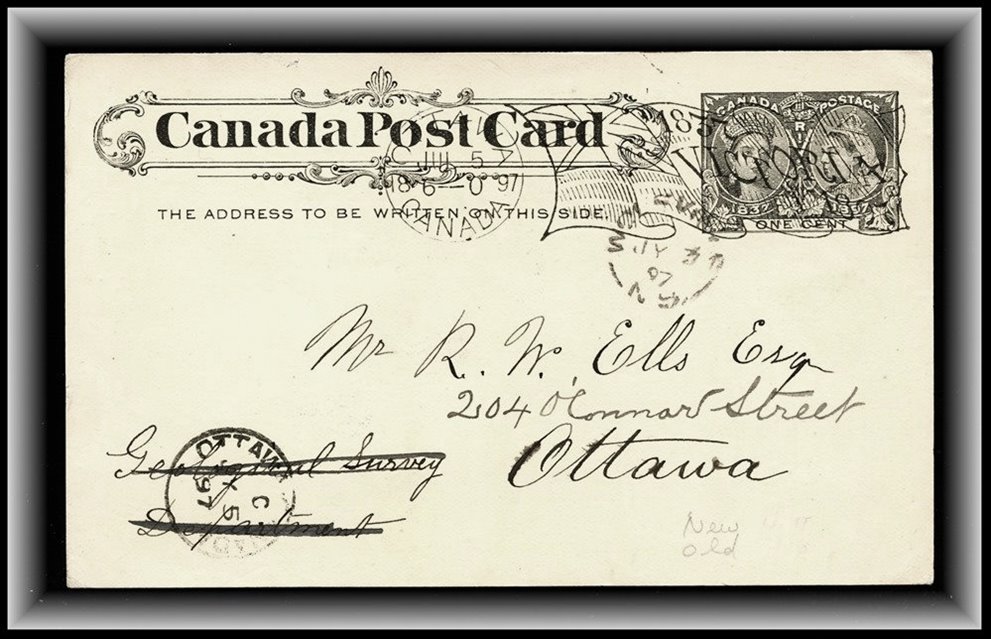 Canada Post Card
CANADA POSTAGE
1837
VICTORIA
JUL 5
18-6-0 97
CANADA
ONE CENT
THE ADDRESS TO BE WRITTEN ON THIS SIDE.
97
Mr R. W. Ells Esq
204 O'Connar Street
Ottawa
Geological Survey
Department
OTTAWA
C
5
97
New
Old